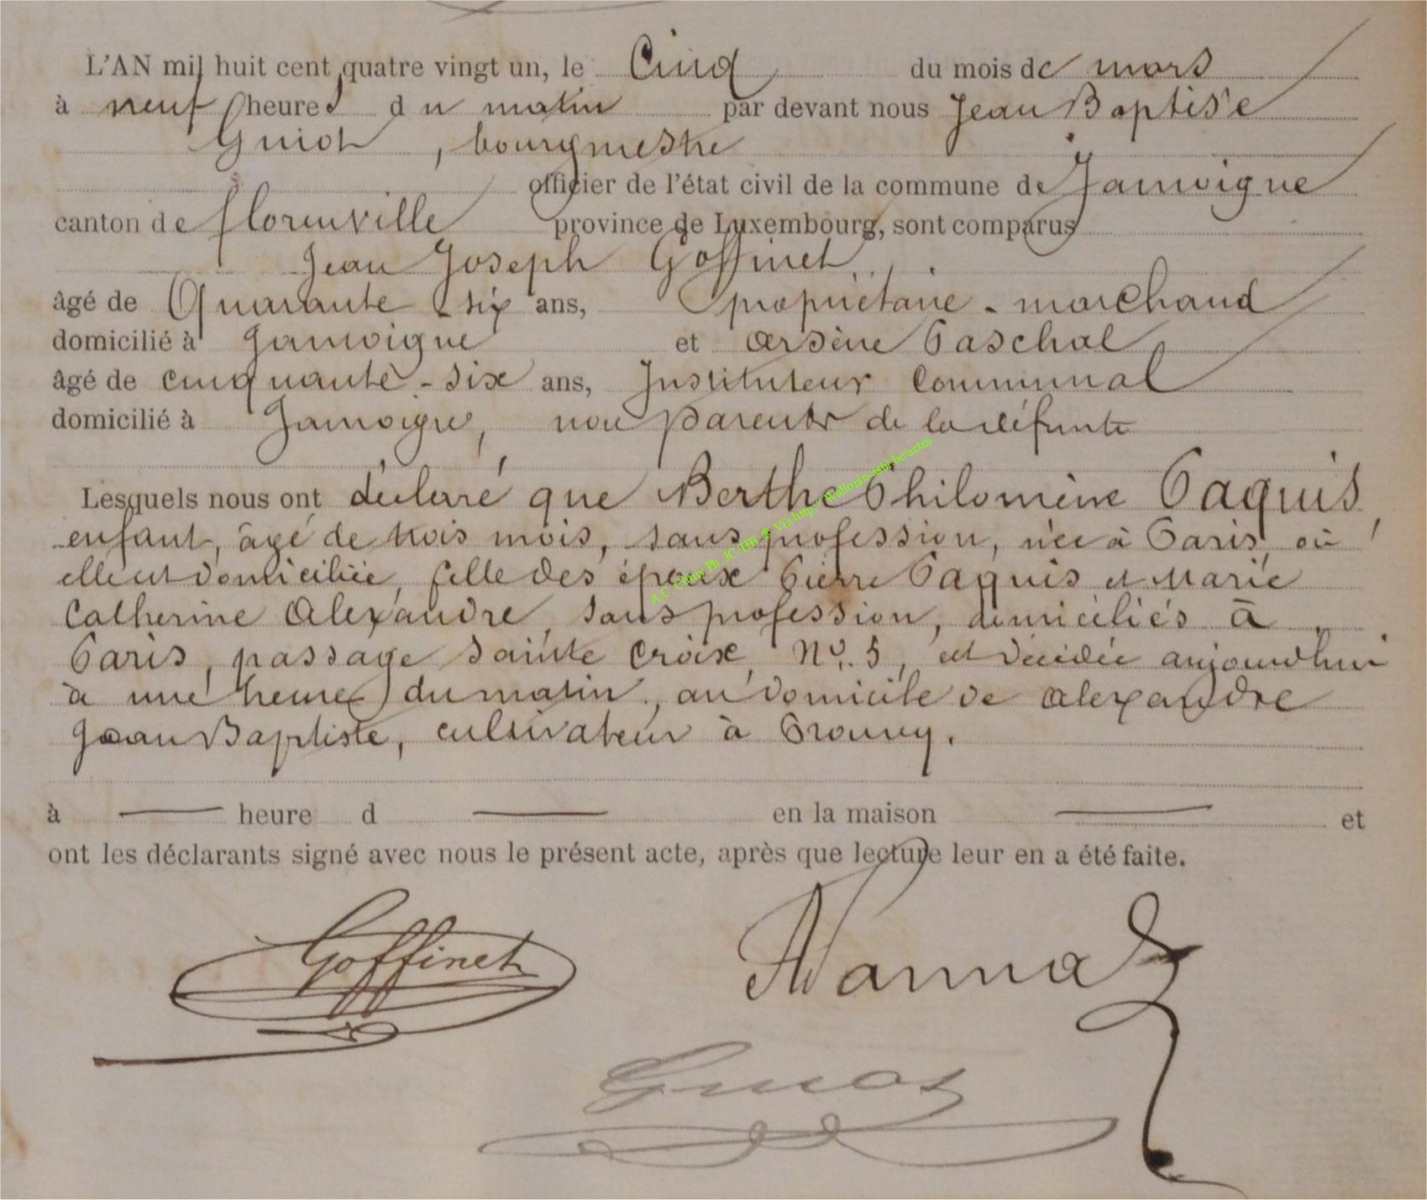 L'AN mil huit cent quatre vingt un, le Cinq du mois de mars
à neuf heures du matin par devant nous Jean Baptiste
Guiot, bourgmestre
officier de l'état civil de la commune de Jamoigne
canton de florenville province de Luxembourg, sont comparus
Jean Joseph Goffinet,
âgé de Quarante-six ans, propriétaire-marchand
domicilié à Jamoigne et Arsène Paschal
âgé de cinquante-six ans, Instituteur Communal
domicilié à Jamoigne, non parents de la défunte
Lesquels nous ont déclaré que Berthe Philomène Paquis
enfant, âgé de trois mois, sans profession, née à Paris, où
elle est domiciliée, fille des époux Pierre Paquis et Marie
Catherine Alexandre, sans profession, domiciliés à
Paris, passage Sainte Croix, No. 5, est décédée aujourdhui
à une heure du matin, au domicile de Alexandre
Jean Baptiste, cultivateur à Prouvy.
à heure d en la maison et
ont les déclarants signé avec nous le présent acte, après que lecture leur en a été faite.
Goffinet
Guiot